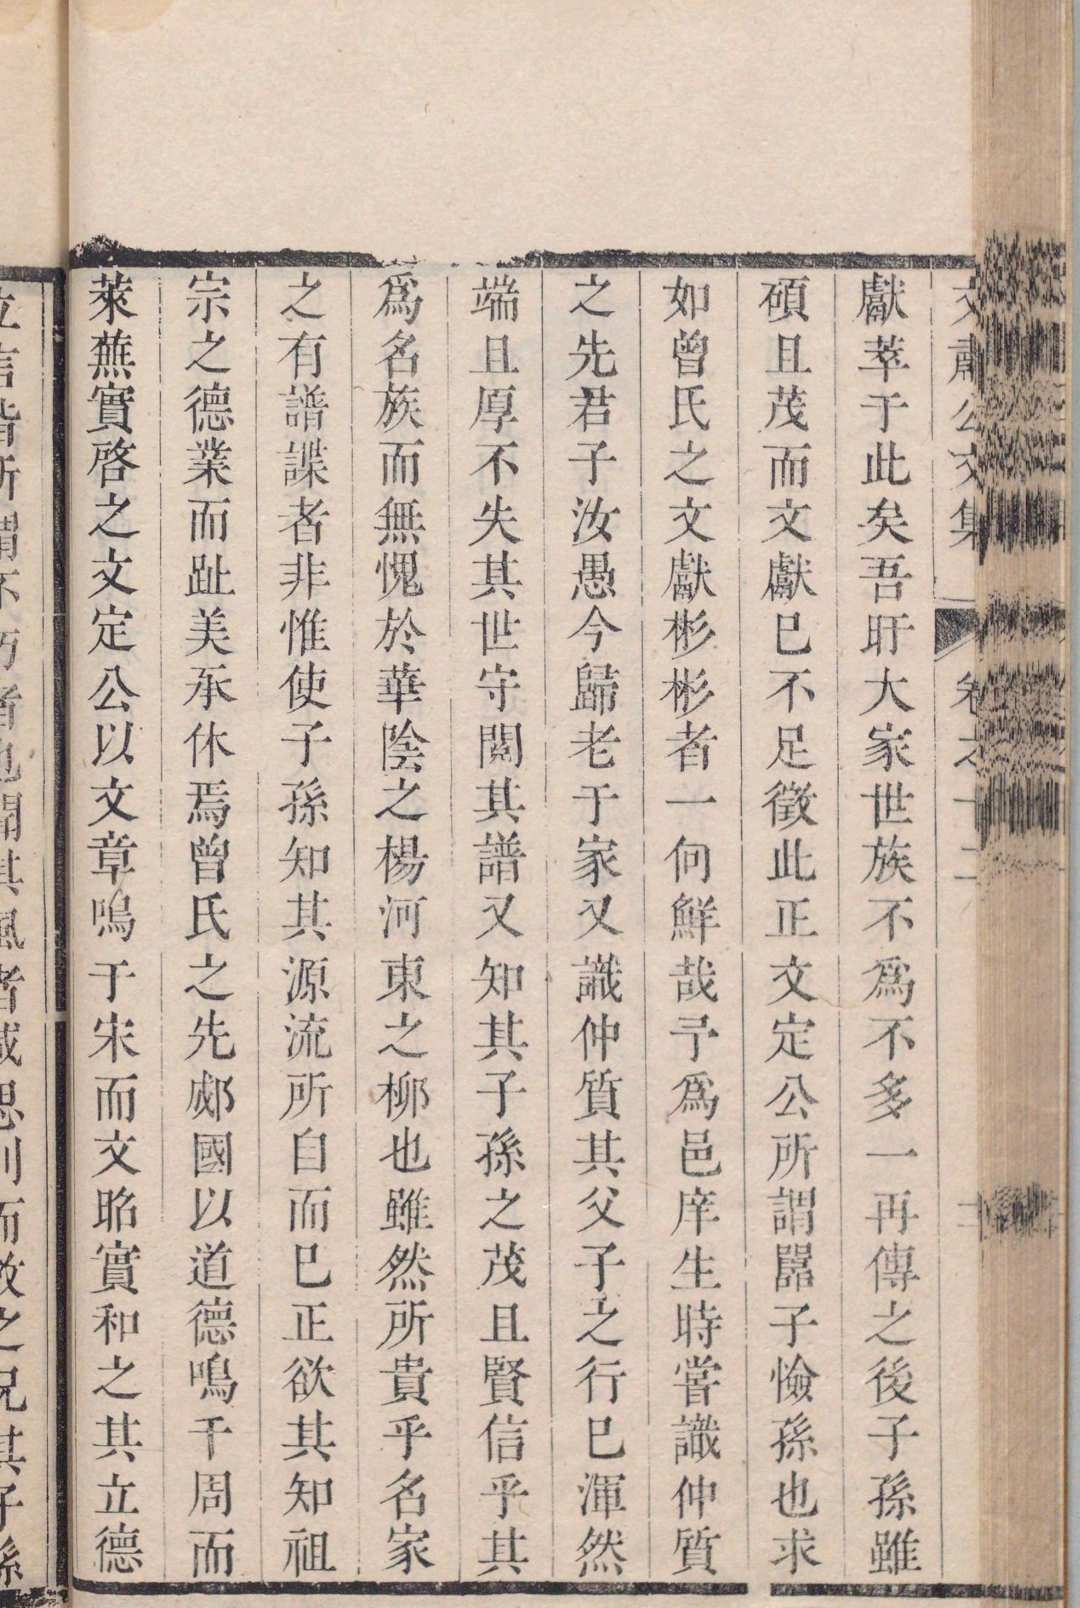 文肅公文集 卷之十二
獻萃于此矣吾盱大家世族不爲不多一再傳之後子孫雖
碩且茂而文獻已不足徵此正文定公所謂嚚子憸孫也求
如曾氏之文獻彬彬者一何鮮哉予爲邑庠生時嘗識仲質
之先君子汝愚今歸老于家又識仲質其父子之行已渾然
端且厚不失其世守閱其譜又知其子孫之茂且賢信乎其
爲名族而無愧於華陰之楊河東之柳也雖然所貴乎名家
之有譜諜者非惟使子孫知其源流所自而已正欲其知祖
宗之德業而趾美承休焉曾氏之先郕國以道德鳴于周而
萊蕪實啓之文定公以文章鳴于宋而文昭實和之其立德
立言皆所謂不朽者也聞其風者感思則而效之況其子孫